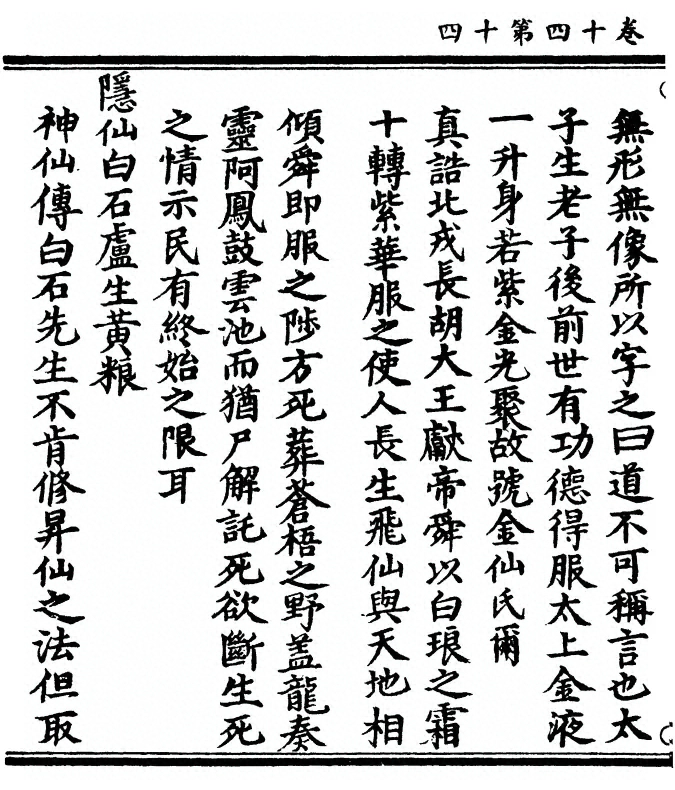 卷十四第十四
無形無像所以字之曰道不可稱言也太
子生老子後前世有功德得服太上金液
一升身若紫金光聚故號金仙氏爾
真誥北戎長胡大王獻帝舜以白琅之霜
十轉紫華服之使人長生飛仙與天地相
傾舜即服之陟方死葬蒼梧之野盖龍奏
靈阿鳳鼓雲池而猶尸解託死欲斷生死
之情示民有終始之限耳
隱仙白石盧生黃粮
神仙傳白石先生不肯修昇仙之法但取